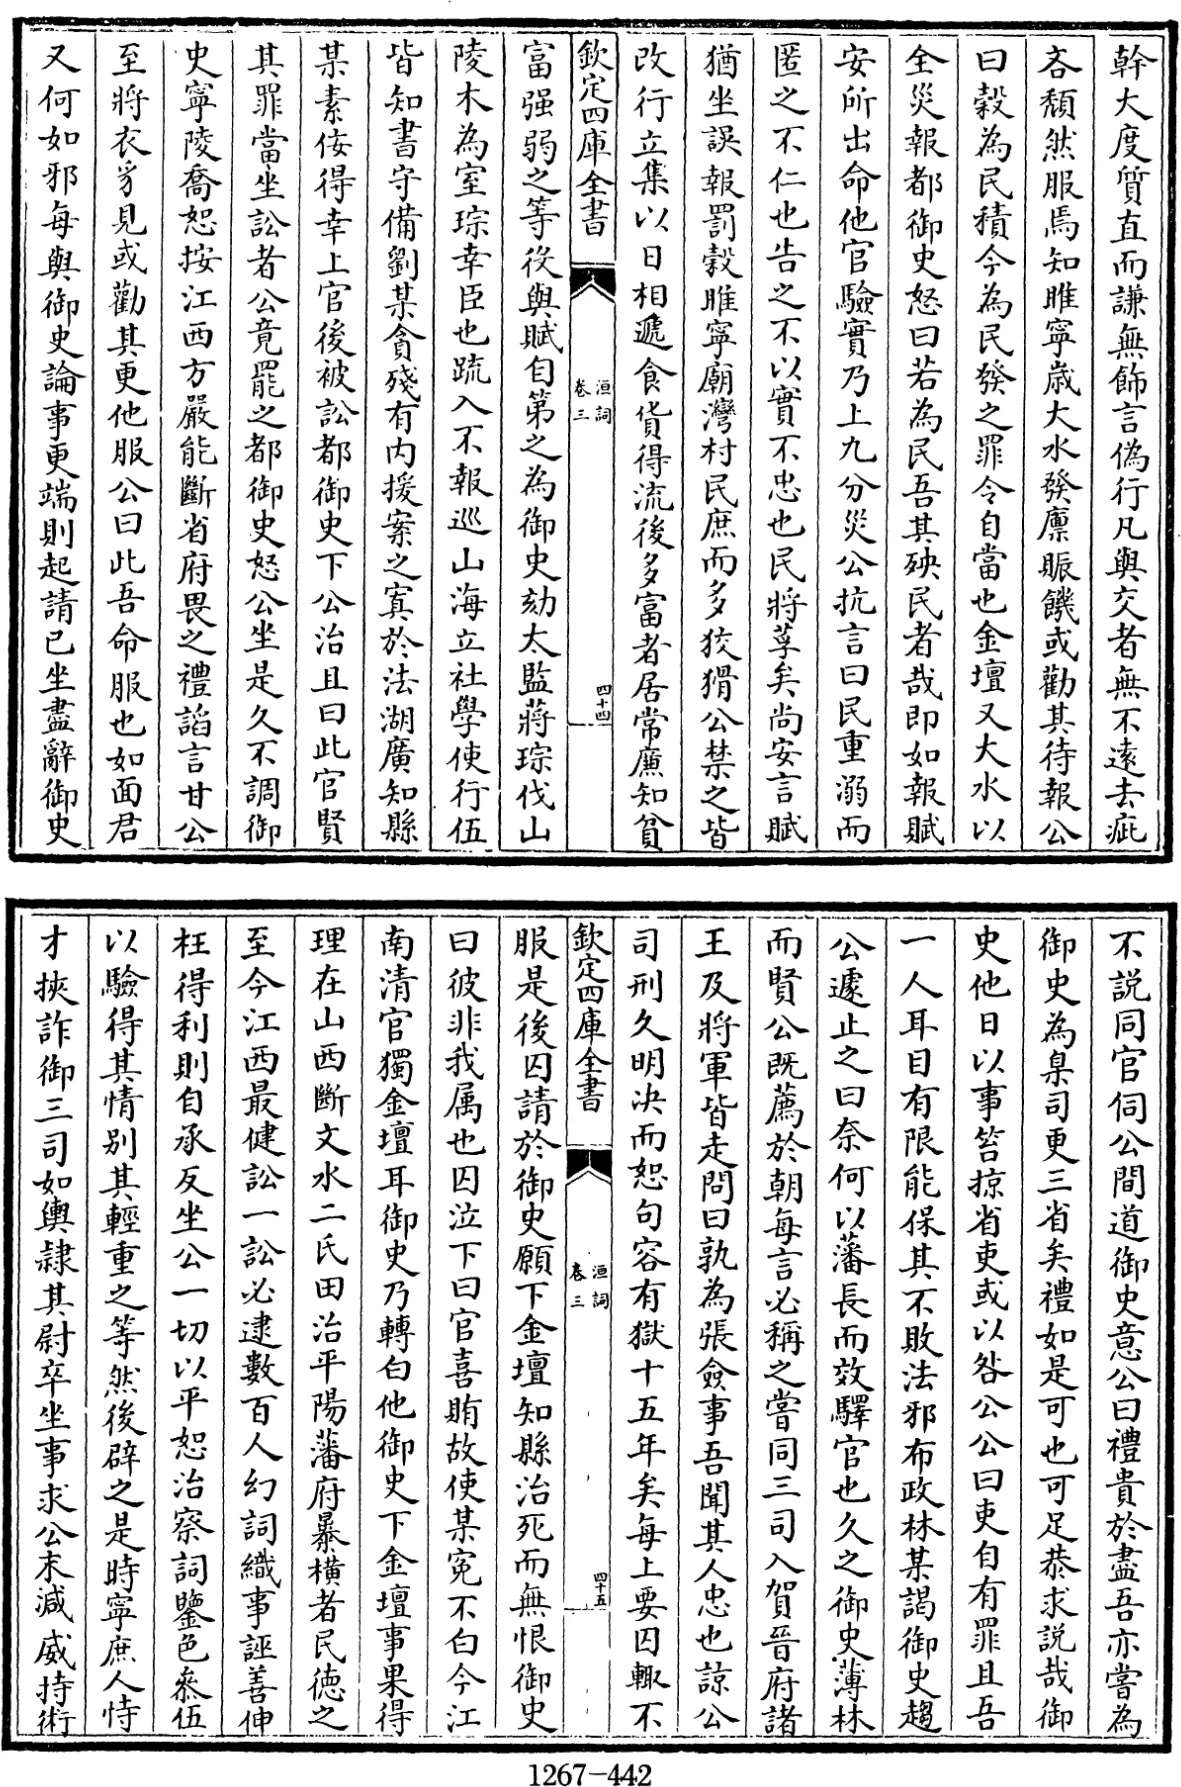 幹大度質直而謙無飾言偽行凡與交者無不遠去疵
吝頹然服焉知睢寧歲大水發廪賑饑或勸其待報公
曰榖為民積今為民發之罪令自當也金壇又大水以
全災報都御史怒曰若為民吾其殃民者哉即如報賦
安所出命他官驗實乃上九分災公抗言曰民重溺而
匿之不仁也告之不以實不忠也民將莩矣尚安言賦
猶坐誤報罰榖睢寧廟灣村民庶而多狡猾公禁之皆
改行立集以日相遞食貨得流後多富者居常廉知貧
欽定四庫全書
洹詞
卷三
四十四
富强弱之等役與賦自第之為御史劾太監蔣琮伐山
陵木為室琮幸臣也疏入不報巡山海立社學使行伍
皆知書守備劉某貪殘有内援案之寘於法湖廣知縣
某素侫得幸上官後被訟都御史下公治且曰此官賢
其罪當坐訟者公竟罷之都御史怒公坐是久不調御
史寧陵喬恕按江西方嚴能斷省府畏之禮諂言甘公
至將衣豸見或勸其更他服公曰此吾命服也如面君
又何如邪每與御史論事更端則起請已坐盡辭御史
不説同官伺公間道御史意公曰禮貴於盡吾亦嘗為
御史為臬司更三省矣禮如是可也可足恭求説哉御
史他日以事笞掠省吏或以咎公公曰吏自有罪且吾
一人耳目有限能保其不敗法邪布政林某謁御史趨
公遽止之曰奈何以藩長而效驛官也久之御史薄林
而賢公既薦於朝每言必稱之嘗同三司入賀晉府諸
王及將軍皆走問曰孰為張僉事吾聞其人忠也諒公
司刑久明决而恕句容有獄十五年矣每上要囚輙不
欽定四庫全書
洹詞
卷三
四十五
服是後囚請於御史願下金壇知縣治死而無恨御史
曰彼非我属也囚泣下曰官喜賄故使某寃不白今江
南清官獨金壇耳御史乃轉白他御史下金壇事果得
理在山西斷文水二氏田治平陽藩府暴横者民德之
至今江西最健訟一訟必逮數百人幻詞織事誣善伸
枉得利則自承反坐公一切以平恕治察詞鑒色叅伍
以驗得其情别其輕重之等然後辟之是時寧庶人恃
才挾詐御三司如輿隷其尉卒坐事求公末減威持術
1267-442